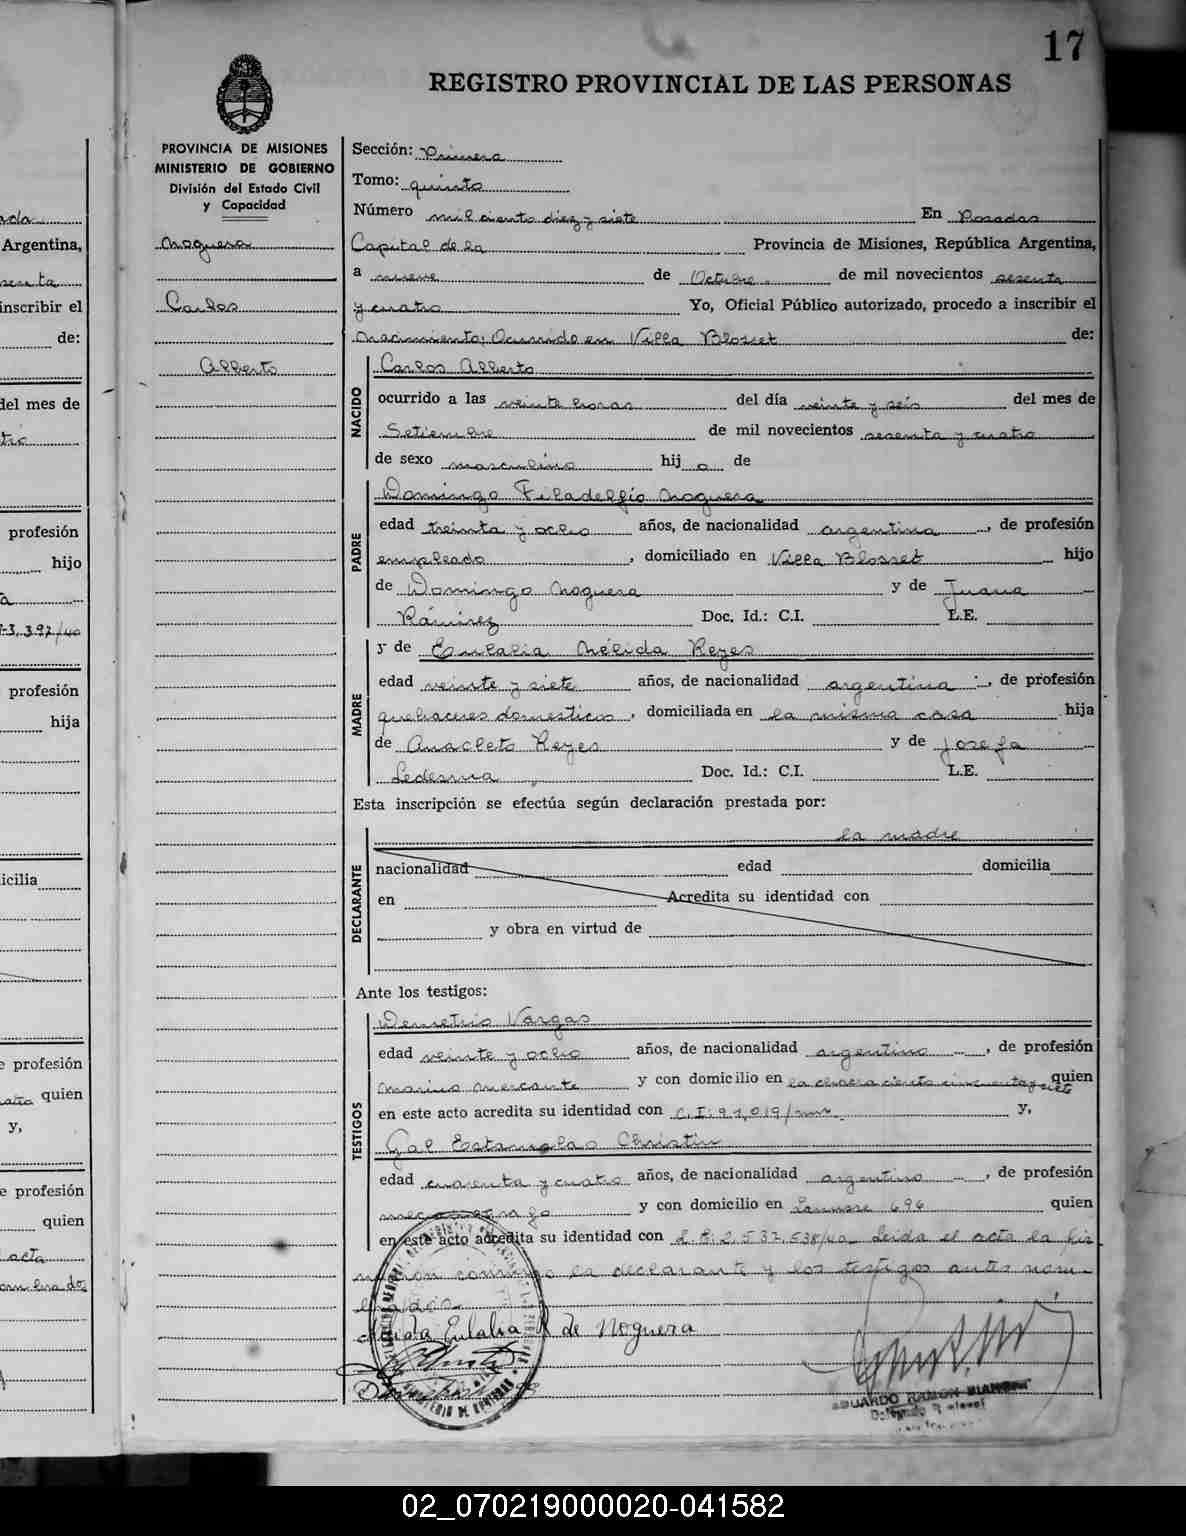 17
REGISTRO PROVINCIAL DE LAS PERSONAS
PROVINCIA DE MISIONES
MINISTERIO DE GOBIERNO
División del Estado Civil
y Capacidad
Noguera
Carlos
Alberto
Sección: Primera
Tomo: quinto
Número mil ciento diez y siete En Posadas
Capital de la Provincia de Misiones, República Argentina,
a nueve de Octubre de mil novecientos sesenta
y cuatro Yo, Oficial Público autorizado, procedo a inscribir el
Nacimiento: Ocurrido en Villa Blosset de:
NACIDO
Carlos Alberto
ocurrido a las veinte horas del día veinte y seis del mes de
Setiembre de mil novecientos sesenta y cuatro
de sexo masculino hij o de
PADRE
Domingo Filadelfio Noguera
edad treinta y ocho años, de nacionalidad argentina, de profesión
empleado, domiciliado en Villa Blosset hijo
de Domingo Noguera y de Juana
Ramírez Doc. Id.: C.I. L.E.
MADRE
y de Eulalia Nélida Reyes
edad veinte y siete años, de nacionalidad argentina, de profesión
quehaceres domesticos, domiciliada en la misma casa hija
de Anacleto Reyes y de Josefa
Ledesma Doc. Id.: C.I. L.E.
Esta inscripción se efectúa según declaración prestada por:
la madre
DECLARANTE
nacionalidad edad domicilia
en Acredita su identidad con
y obra en virtud de
Ante los testigos:
TESTIGOS
Demetrio Vargas
edad veinte y ocho años, de nacionalidad argentino, de profesión
Marino mercante y con domicilio en la chacra ciento cincuenta y siete quien
en este acto acredita su identidad con C.I: 91,019/ y,
Gal Estanislao Christin
edad cuarenta y cuatro años, de nacionalidad argentino, de profesión
y con domicilio en 696 quien
en este acto acredita su identidad con L.E. 2.532.538/ Leida el acta la fir
man conmigo la declarante y los testigos antes nom-
brados.
Nélida Eulalia R de Noguera
EDUARDO RAMON
Delegado
Argentina,
inscribir el
de:
del mes de
profesión
hijo
profesión
hija
icilia
e profesión
quien
y,
e profesión
quien
acta
02_070219000020-041582